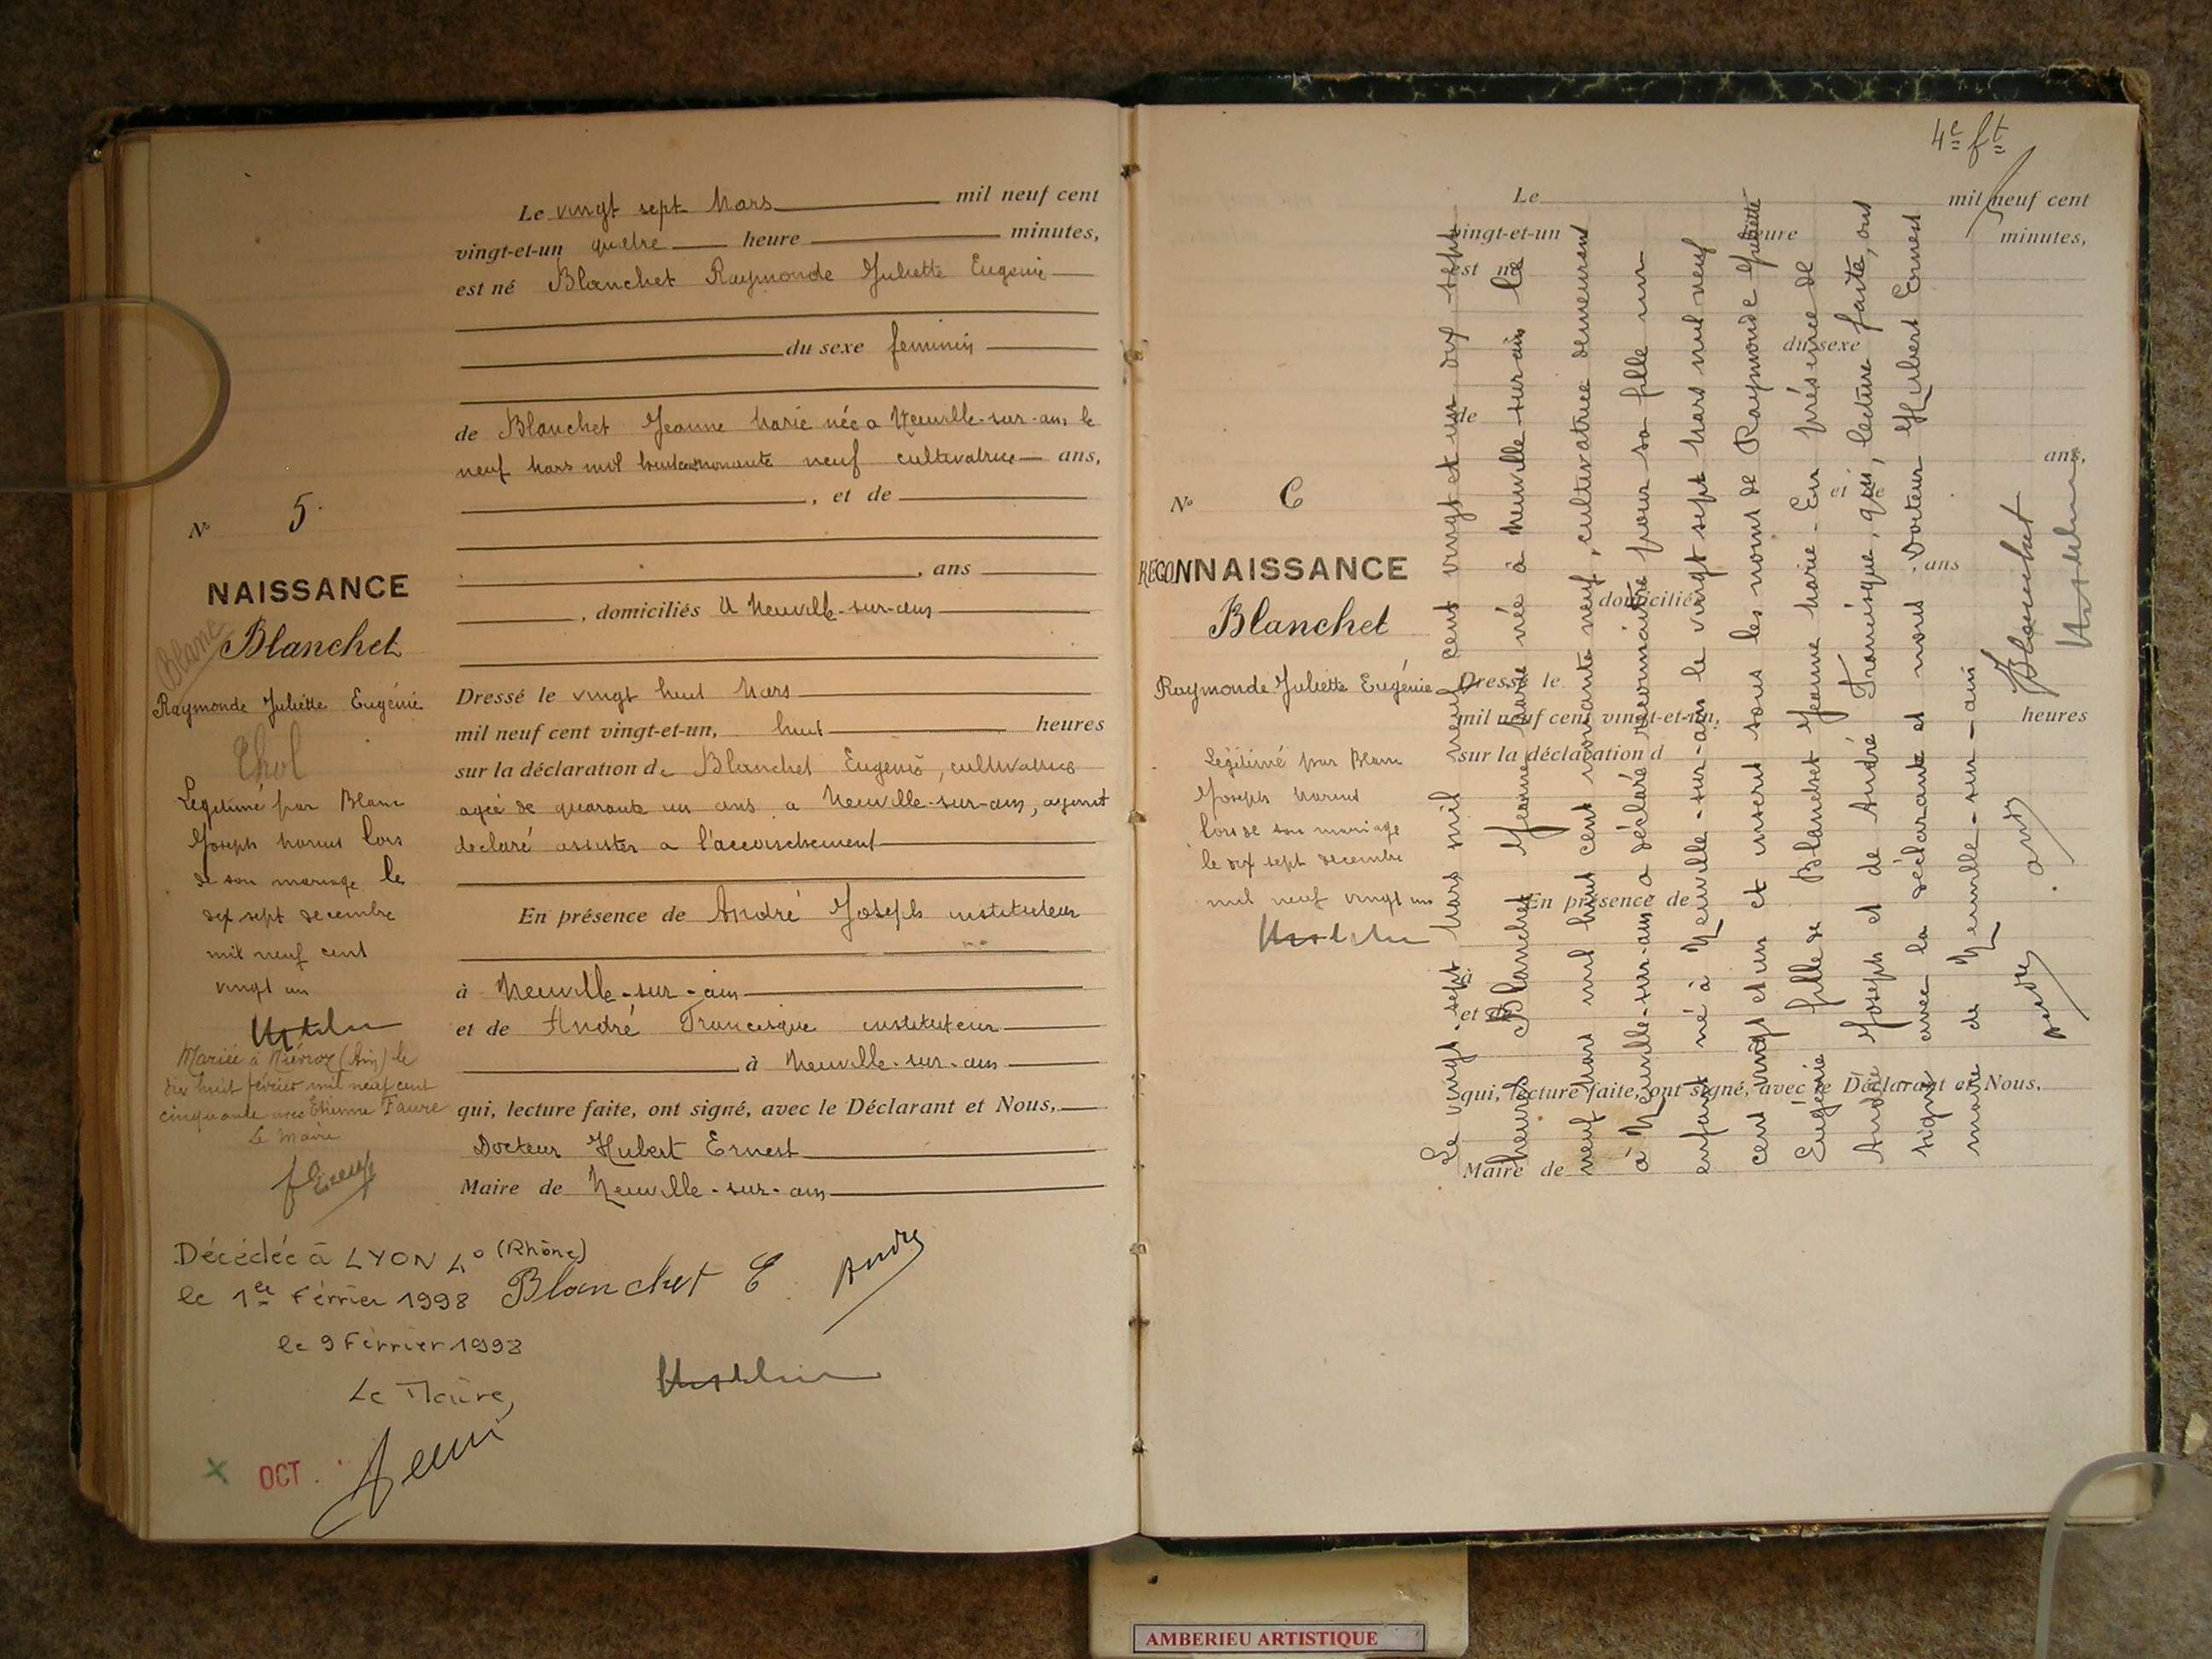 Le vingt sept Mars mil neuf cent
vingt-et-un quatre heure minutes,
est né Blanchet Raymonde Juliette Eugénie
du sexe feminin
de Blanchet Jeanne Marie née a Neuville-sur-ain le
neuf Mars mil huit cent nonante neuf cultivatrice ans,
, et de
, ans
, domiciliés à Neuville-sur-ain
Dressé le vingt huit Mars
mil neuf cent vingt-et-un, huit heures
sur la déclaration de Blanchet Eugénie, cultivatrice
agée de quarante un ans a Neuville-sur-ain, ayant
declaré assister a l'accouchement
En présence de André Joseph instituteur
à Neuville-sur-ain
et de André Francisque instituteur
à Neuville-sur-ain
qui, lecture faite, ont signé, avec le Déclarant et Nous,
Docteur Hubert Ernest
Maire de Neuville-sur-ain
Blanchet E
André
N° 5
NAISSANCE
Blanc
Blanchet
Raymonde Juliette Eugénie
Thol
Légitimé par Blanc
Joseph Marius lors
de son mariage le
dix sept decembre
mil neuf cent
vingt un
Mariée à (Ain) le
dix huit février mil neuf cent
cinquante avec Etienne Faure
Le Maire
Décédée à LYON 4° (Rhône)
le 1er Février 1998
le 9 Février 1998
Le Maire,
X OCT.
4e ft
Le mil neuf cent
vingt-et-un heure minutes,
est né
du sexe
de
ans,
et de
, ans
domiciliés
Dressé le
mil neuf cent vingt-et-un, heures
sur la déclaration d
En présence de
à
et de
qui, lecture faite, ont signé, avec le Déclarant et Nous,
Maire de
N° 6
RECONNAISSANCE
Blanchet
Raymonde Juliette Eugénie
Légitimé par Blanc
Joseph Marius
lors de son mariage
le dix sept decembre
mil neuf vingt un
Le vingt-sept Mars mil neuf cent vingt et un dix sept
heures Blanchet Jeanne Marie née à Neuville-sur-ain le
neuf Mars mil huit cent nonante neuf, cultivatrice demeurant
à Neuville-sur-ain a déclaré reconnaitre pour sa fille un
enfant né à Neuville-sur-ain le vingt sept Mars mil neuf
cent vingt et un et inscrit sous les noms de Raymonde Juliette
Eugénie fille de Blanchet Jeanne Marie. En présence de
André Joseph et de André Francisque, qui, lecture faite, ont
signé avec la déclarante et nous Docteur Hubert Ernest
maire de Neuville-sur-ain
André André J Blanchet
AMBERIEU ARTISTIQUE